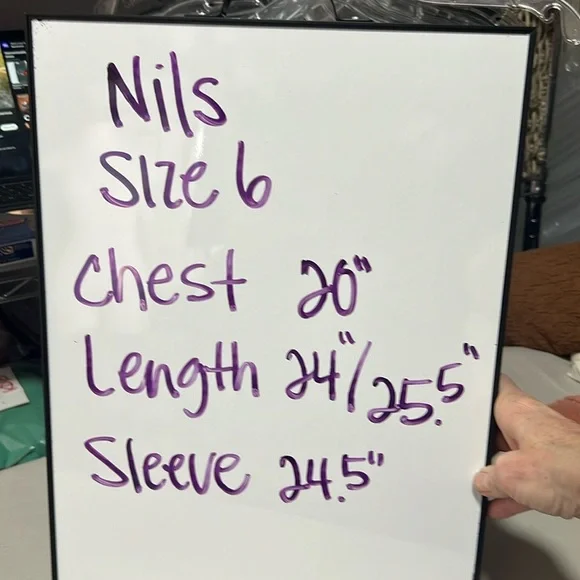 Nils
Size 6
Chest 20"
Length 24"/25.5"
Sleeve 24.5"